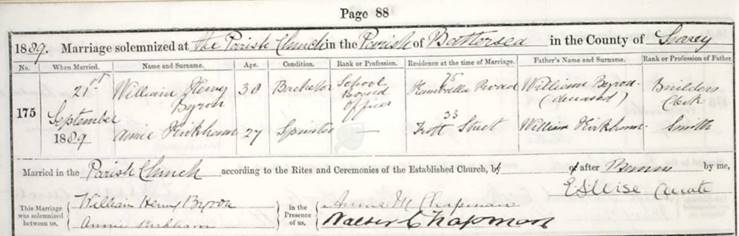 Page 88
1889. Marriage solemnized at the Parish Church in the Parish of Battersea in the County of Surrey
No. When Married. Name and Surname. Age. Condition. Rank or Profession. Residence at the time of Marriage. Father's Name and Surname. Rank or Profession of Father.
175 21st September 1889 William Henry Byron 30 Bachelor School Board Officer 75 Road William Byron (deceased) Builders Clerk
Annie Kirkham 27 Spinster — 33 Trott Street William Kirkham Smith
Married in the Parish Church according to the Rites and Ceremonies of the Established Church, by or after Banns by me,
E S Wise Curate
This Marriage was solemnized between us, William Henry Byron Annie Kirkham in the Presence of us, Annie M Chapman Walter Chapman